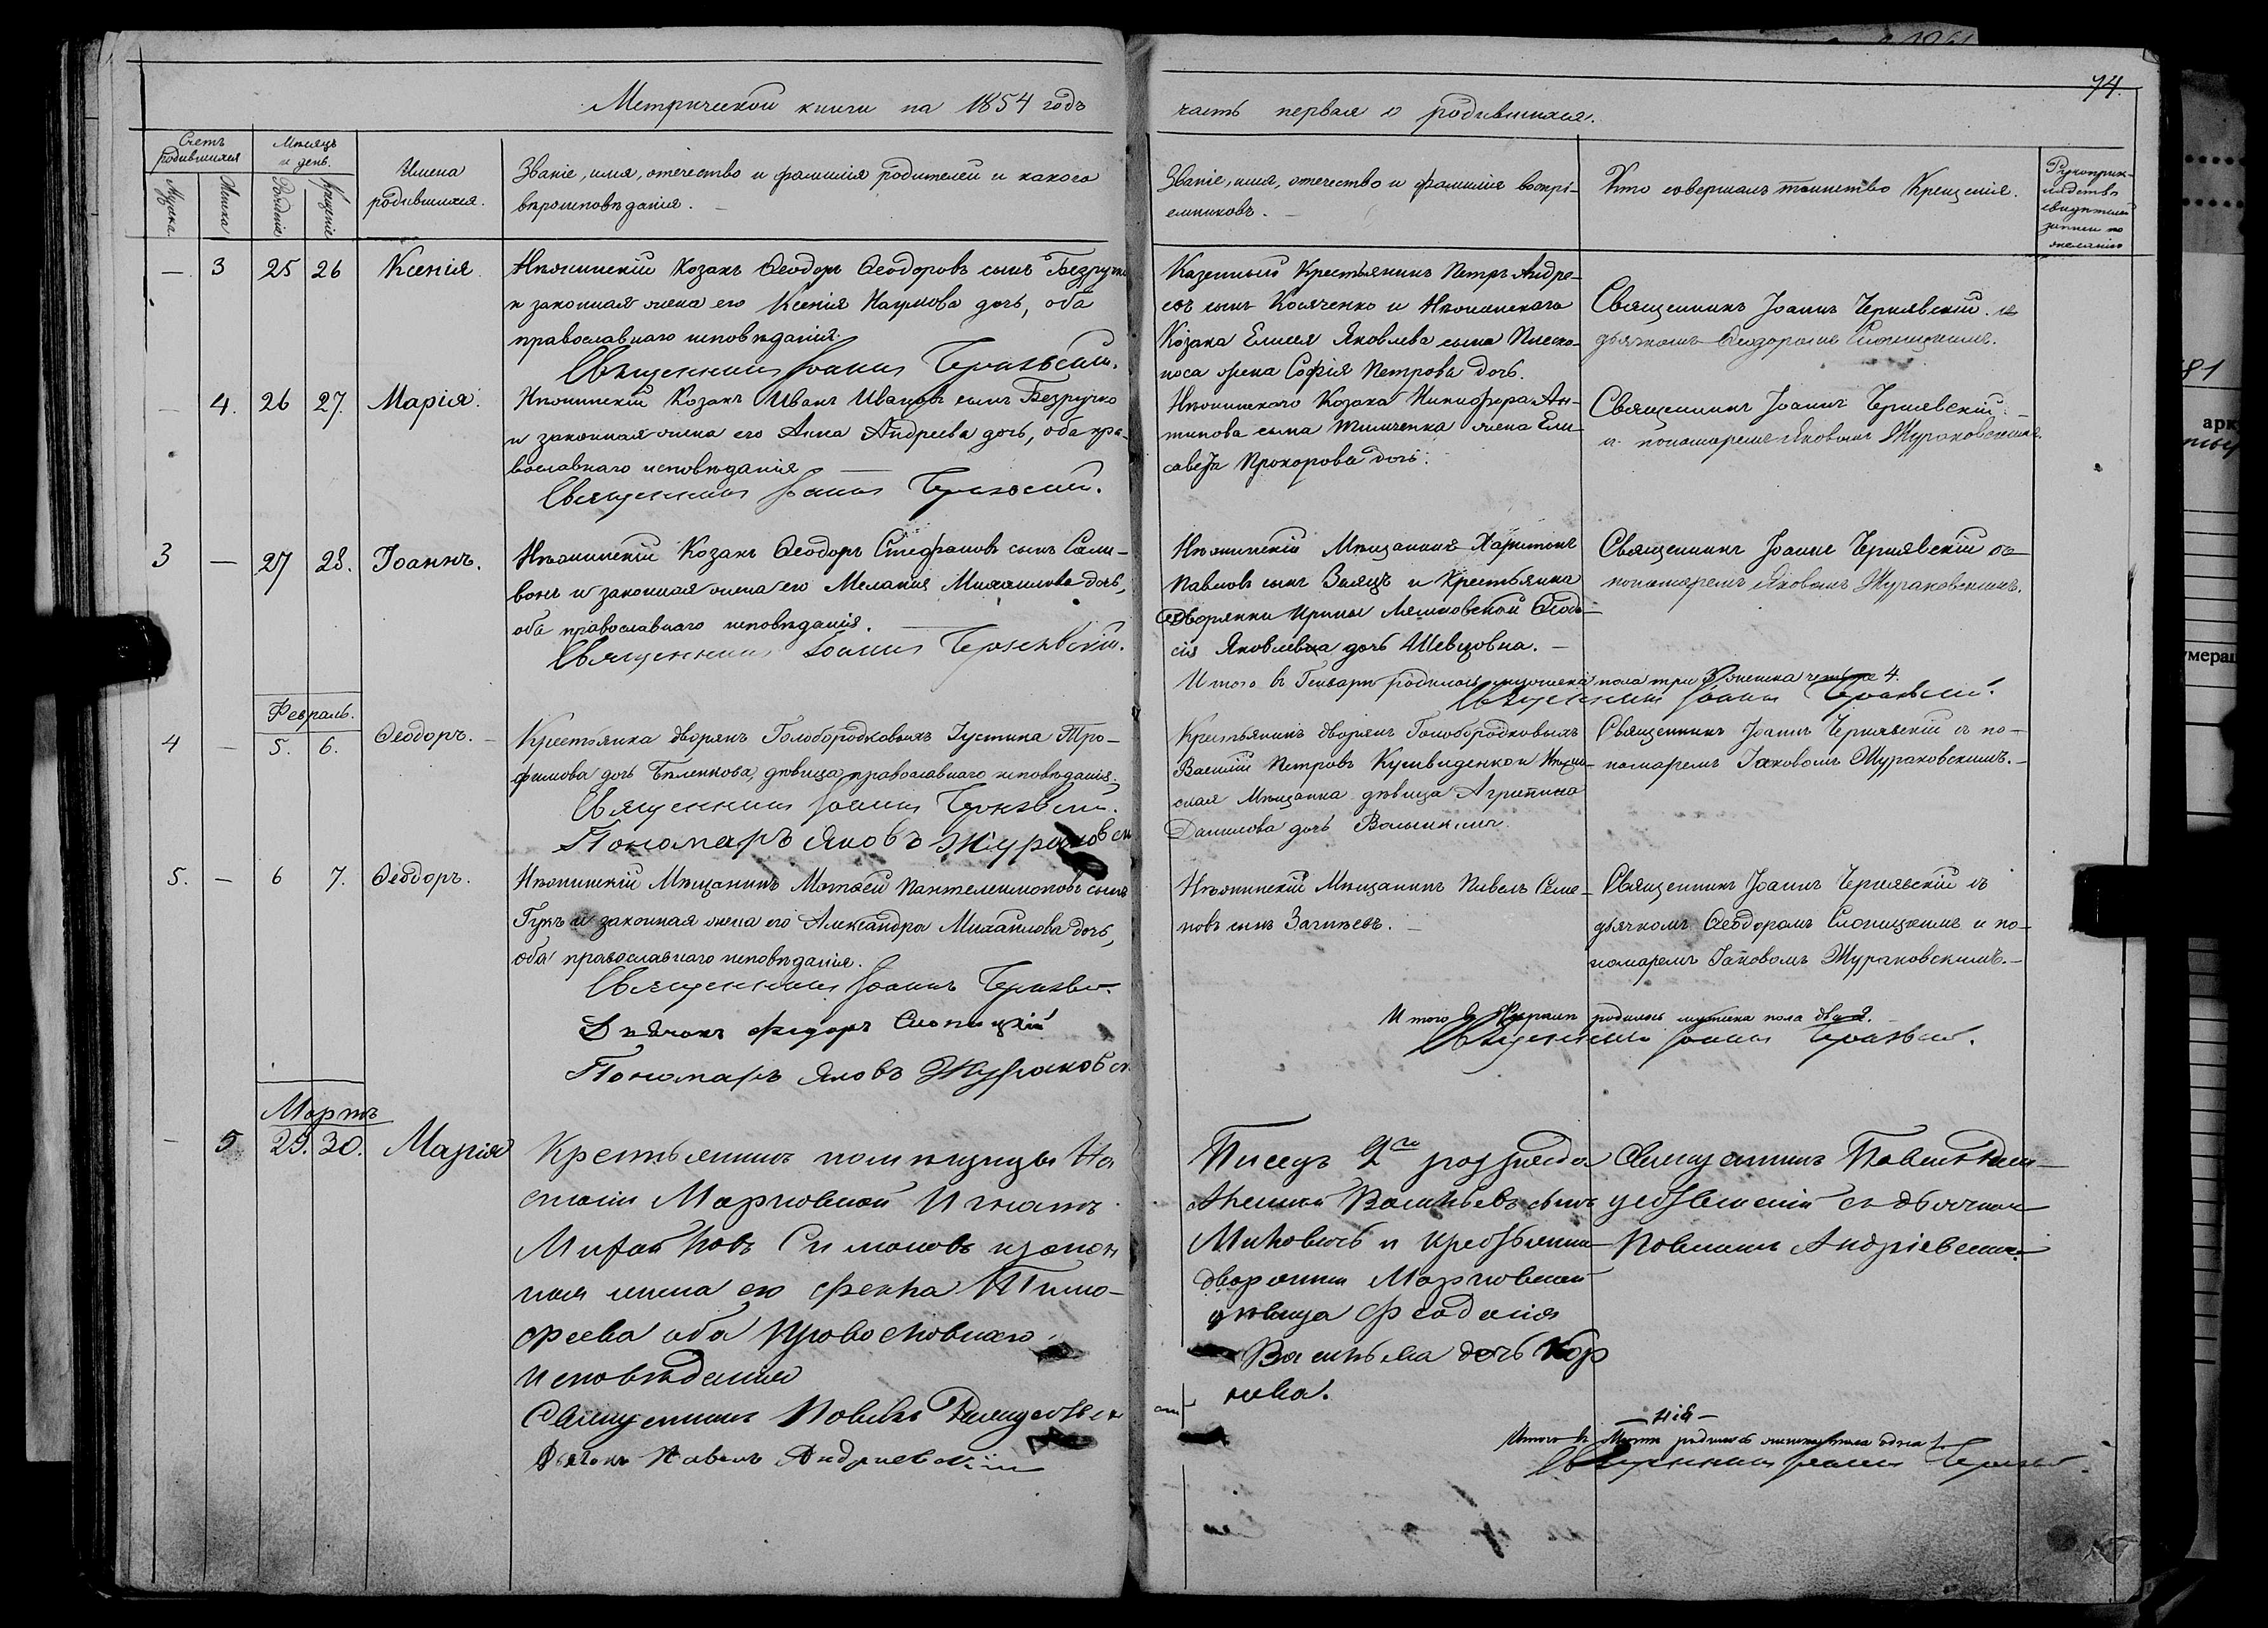 Метрической книги на 1854 годъ
часть первая о родившихся.
74.
Счетъ родившихся
Мѣсяцъ и день.
Имена родившихся.
Званіе, имя, отечество и фамилія родителей и какого
вѣроисповѣданія.
Мужска.
Женска
Рожденіе
Крещеніе
Званіе, имя, отечество и фамилія воспрі-
емниковъ.
Кто совершалъ таинство Крещенія.
Рукоприк-
ладство
свидѣтелей
записи по
желанію
— 3 25 26 Ксенія.
Нѣжинскій Козакъ Ѳеодоръ Ѳеодоровъ сынъ
и законная жена его Ксенія Наумова дочь, оба
православнаго исповѣданія.
Священникъ Іоаннъ Чернявскій.
Казенный Крестьянинъ Петръ Андре-
евъ сынъ Косяченко и Нѣжинскаго
Козака Елисея Яковлева сына
жена Софія Петрова дочь.
Священникъ Іоаннъ Чернявскій
дьячкомъ Ѳеодоромъ Слоницкимъ.
— 4. 26 27. Марія.
Нѣжинскій Козакъ Иванъ Ивановъ сынъ Безручко
и законная жена его Анна Андреева дочь, оба пра-
вославнаго исповѣданія
Священникъ Іоаннъ Чернявскій.
Нѣжинскаго Козака Никифора Ан-
типова сына Тимченка жена Ели-
савета Прохорова дочь.
Священникъ Іоаннъ Чернявскій
и пономаремъ Яковомъ Жураковскимъ.
3 — 27 28. Іоаннъ.
Нѣжинскій Козакъ Ѳеодоръ Стефановъ сынъ Сали-
вонъ и законная жена его Меланія Михаилова дочь,
оба православнаго исповѣданія.
Священникъ Іоаннъ Чернявскій.
Нѣжинскій Мѣщанинъ Харитонъ
Павловъ сынъ Заяцъ и Крестьянка
Дворянки Ирины Ляшковской Ѳеодо-
сія Яковлевна дочь Шевцовна.
Священникъ Іоаннъ Чернявскій съ
пономаремъ Яковомъ Жураковскимъ.
Итого въ Генварѣ родилось мужеска пола три 3 женска четыре 4.
Священникъ Іоаннъ Чернявскій.
Февраль.
4 — 5. 6. Ѳеодоръ.
Крестьянка дворянъ Голобородковыхъ Іустина Тро-
фимова дочь Биленкова, дѣвица, православнаго исповѣданія.
Священникъ Іоаннъ Чернявскій.
Пономаръ Яковъ Жураковск
Крестьянинъ дворянъ Голобородковыхъ
Василій Петровъ и Нѣжин-
ская Мѣщанка дѣвица Агрипина
Данилова дочь
Священникъ Іоаннъ Чернявскій съ по-
номаремъ Іаковомъ Жураковскимъ.
5. — 6 7. Ѳеодоръ.
Нѣжинскій Мѣщанинъ Матѳей Пантелеимоновъ сынъ
Гукъ и законная жена его Александра Михаилова дочь,
оба православнаго исповѣданія.
Священникъ Іоаннъ Чернявск.
Дьячокъ Федоръ Слоницкій
Пономаръ Яковъ Жураковск
Нѣжинскій Мѣщанинъ Павелъ Семе-
новъ сынъ
Священникъ Іоаннъ Чернявскій съ
дьячкомъ Ѳеодоромъ Слоницкимъ и по-
номаремъ Іаковомъ Жураковскимъ.
Итого въ Февралѣ родилось мужска пола два 2.
Священникъ Іоаннъ Чернявскій.
Мартъ
— 5 29. 30. Марія
Крестьянинъ помѣщицы На
стасіи Марковской Игнатъ
Симоновъ и закон
ная жена его Фекла Тимо-
феева оба Православнаго
исповѣданія
Священникъ Павелъ
Дьячокъ Павелъ Андриевскій
Писецъ 2го разряда
Алексѣй Васильевъ сынъ
и крестьянка
дворянки Марковской
дѣвица Феодосія
Васильева дочь Кор
нева.
Священникъ Павелъ
съ дьячкомъ
Павломъ Андріевскимъ.
Итого въ Мартѣ родилось женска пола одна 1.
Священникъ Іоаннъ Чернявск.